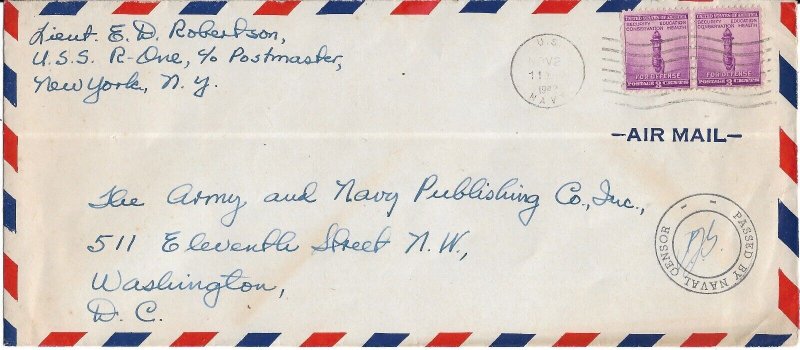 Lieut. E. D. Robertson,
U.S.S. R-One, c/o Postmaster,
New York, N.Y.
U.S.
NOV 2
11
1942
NAVY
UNITED STATES OF AMERICA
SECURITY EDUCATION
CONSERVATION HEALTH
FOR DEFENSE
POSTAGE 3 CENTS
UNITED STATES OF AMERICA
SECURITY EDUCATION
CONSERVATION HEALTH
FOR DEFENSE
POSTAGE 3 CENTS
—AIR MAIL—
The Army and Navy Publishing Co., Inc.,
511 Eleventh Street N.W.,
Washington,
D.C.
PASSED BY NAVAL CENSOR